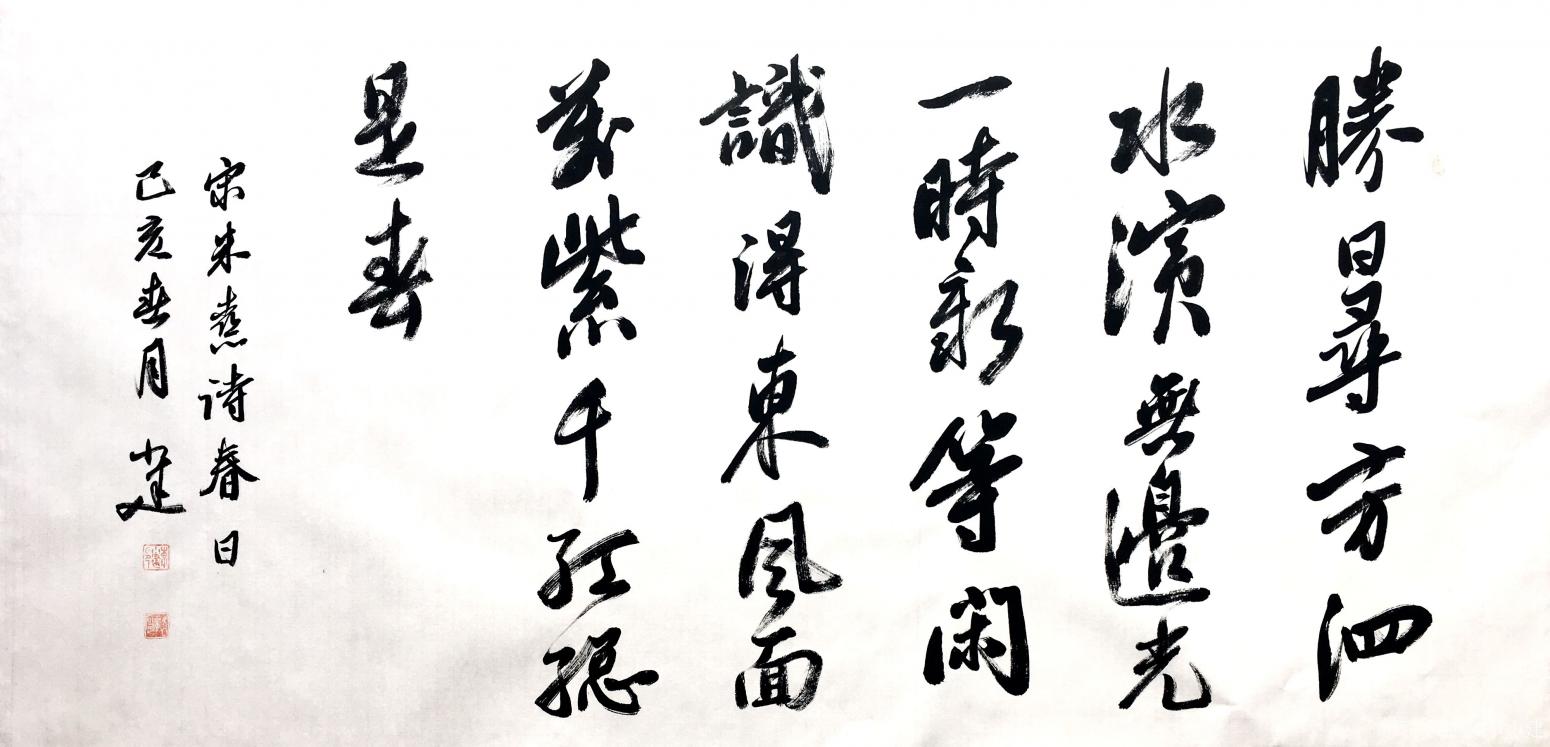 勝日尋方泗
水濱無邊光
一時新等閑
識得東風面
萬紫千紅總
是春
宋朱熹詩春日
己亥春月小建